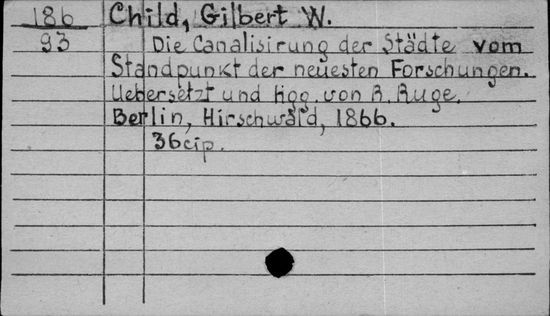 186 Child, Gilbert W.
93 Die Canalisirung der Städte vom
Standpunkt der neuesten Forschungen.
Uebersetzt und hgg. von R. Ruge.
Berlin, Hirschwald, 1866.
36cip.